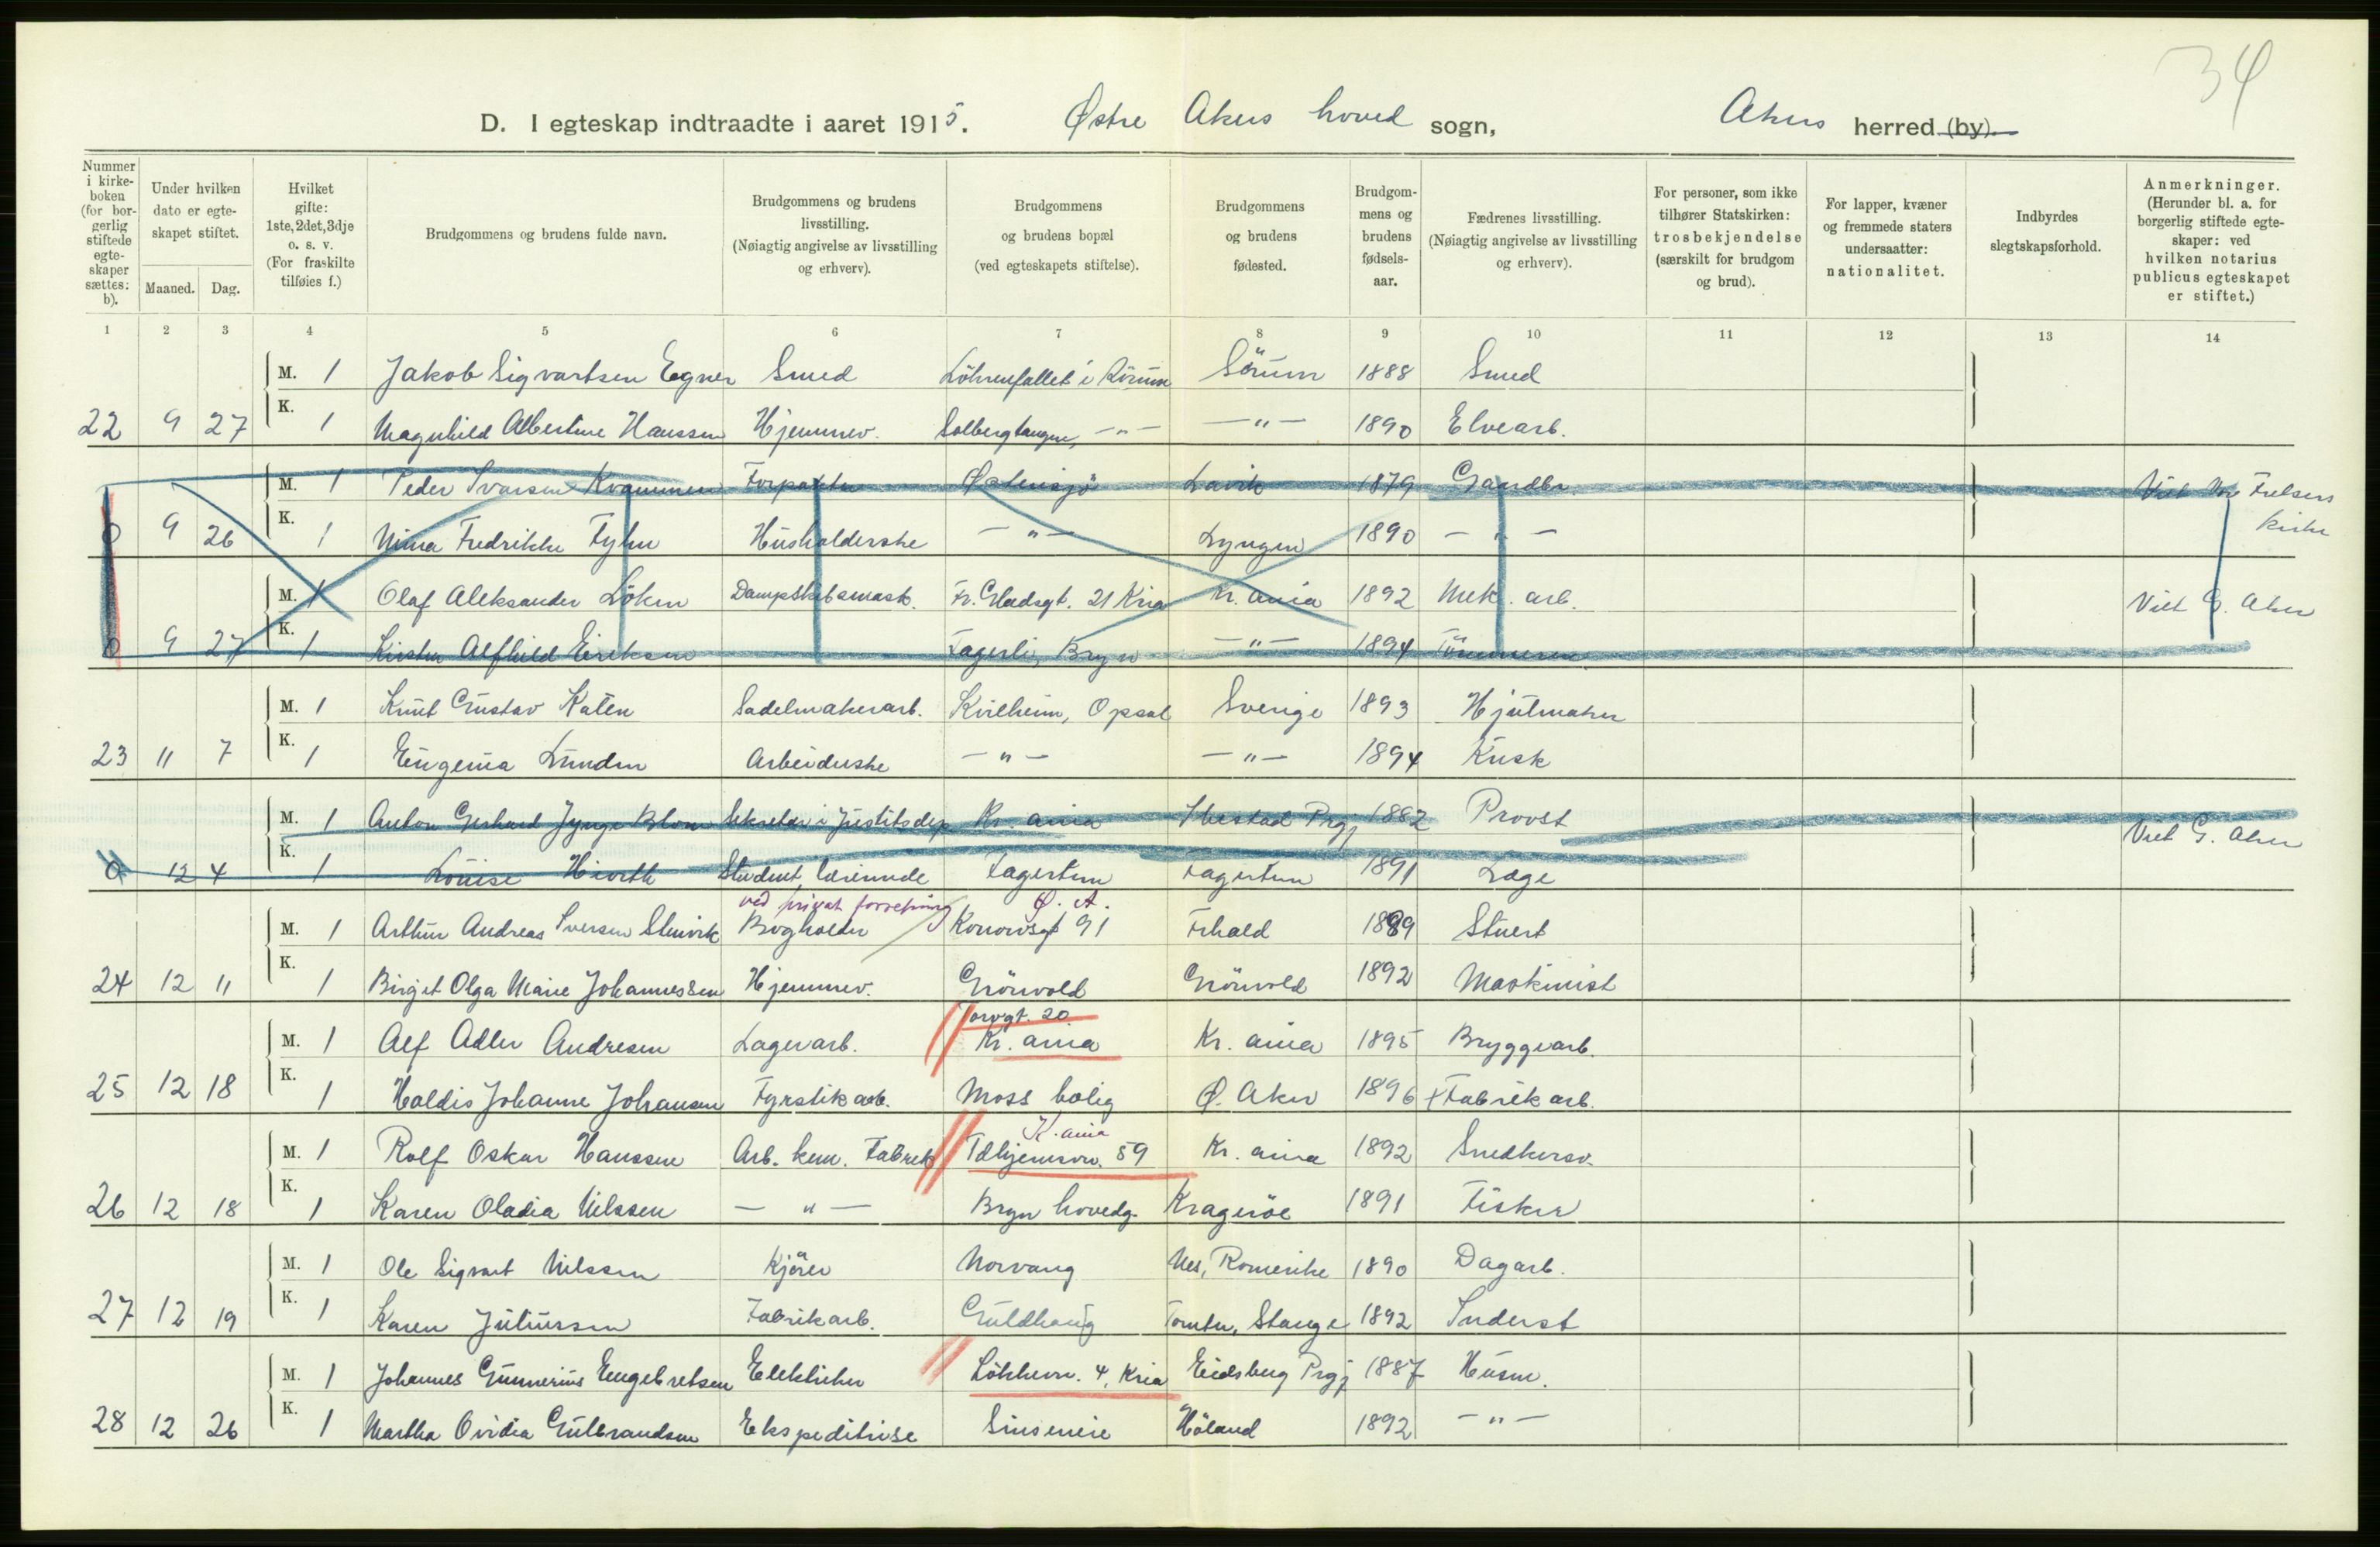 34
D. I egteskap indtraadte i aaret 1915. Østre Akers hoved sogn, Akers herred (by).
Nummer i kirke-boken (for bor-gerlig stiftede egte-skaper sættes: b).
Under hvilken dato er egte-skapet stiftet.
Maaned. Dag.
Hvilket gifte: 1ste, 2det, 3dje o. s. v. (For fraskilte tilføies f.)
Brudgommens og brudens fulde navn.
Brudgommens og brudens livsstilling. (Nøiagtig angivelse av livsstilling og erhverv).
Brudgommens og brudens bopæl (ved egteskapets stiftelse).
Brudgommens og brudens fødested.
Brudgom-mens og brudens fødsels-aar.
Fædrenes livsstilling. (Nøiagtig angivelse av livsstilling og erhverv).
For personer, som ikke tilhører Statskirken: trosbekjendelse (særskilt for brudgom og brud).
For lapper, kvæner og fremmede staters undersaatter: nationalitet.
Indbyrdes slegtskapsforhold.
Anmerkninger. (Herunder bl. a. for borgerlig stiftede egte-skaper: ved hvilken notarius publicus egteskapet er stiftet.)
1 2 3 4 5 6 7 8 9 10 11 12 13 14
M. 1 Jakob Sigvartsen Egner Smed Löhrenfallet i Sörum Sörum 1888 Smed
22 9 27 K. 1 Magnhild Albertine Hanssen Hjemmev. Solbergtangen, -"- -"- 1890 Elvearb.
M. 1 Peder Ivarsen Kvammen Forpakter Østensjö Lavik 1879 Gaardbr. Viet Vor Frelsers kirke
0 9 26 K. 1 Nina Fredrikke Fyhn Husholderske -"- Lyngen 1890 -"-
M. 1 Olaf Aleksander Löken Dampskibsmask. Fr. Gladsgt. 21 Kria Kr.ania 1892 Mek. arb. Viet G. Aker
0 9 27 K. 1 Kirsten Alfhild Eriksen Fagerli, Bryn -"- 1894 Tömmerm.
M. 1 Knut Gustav Katen Sadelmakerarb. Kirlheim, Opsal Sverige 1893 Hjulmaker
23 11 7 K. 1 Eugenia Lunden Arbeiderske -"- -"- 1894 Kusk
M. 1 Anton Gerhard Jynge Blom Sekretær i Justitsdep Kr.ania Ibestad Prgj 1882 Provst Viet G. Aker
0 12 4 K. 1 Louise Hiorth Student, lærerinde Fagertun Fagertun 1891 Læge
ved privat forretning Ø. A.
M. 1 Arthur Andreas Iversen Stenvik Bogholder Konowsgt 91 Frhald 1889 Stuert
24 12 11 K. 1 Birgit Olga Marie Johannessen Hjemmev. Grönvold Grönvold 1892 Maskinist
Torvgt. 20
M. 1 Alf Adler Andresen Lagerarb. Kr.ania Kr.ania 1895 Bryggearb.
25 12 18 K. 1 Haldis Johanne Johansen Fyrstikarb. Moss bolig Ø. Aker 1896 Fabrikarb.
Kr.ania
M. 1 Rolf Oskar Hanssen Arb. kem. Fabrik Tdhjemsvn. 59 Kr.ania 1892 Snedkersv.
26 12 18 K. 1 Karen Oladia Nilssen -"- Bryn hovedg. Kragerøe 1891 Fisker
M. 1 Ole Sigvart Nilssen Kjörer Norvang Nes, Romerike 1890 Dagarb.
27 12 19 K. 1 Karen Juliussen Fabrikarb. Guldhaug Tomter, Stange 1892 Inderst
M. 1 Johannes Gunnerius Engebretsen Elektriker Lökkevn. 4, Kria Eidsberg Prgj 1887 Husm.
28 12 26 K. 1 Martha Ovidia Gulbrandsen Ekspeditrise Sinsenveie Höland 1892 -"-